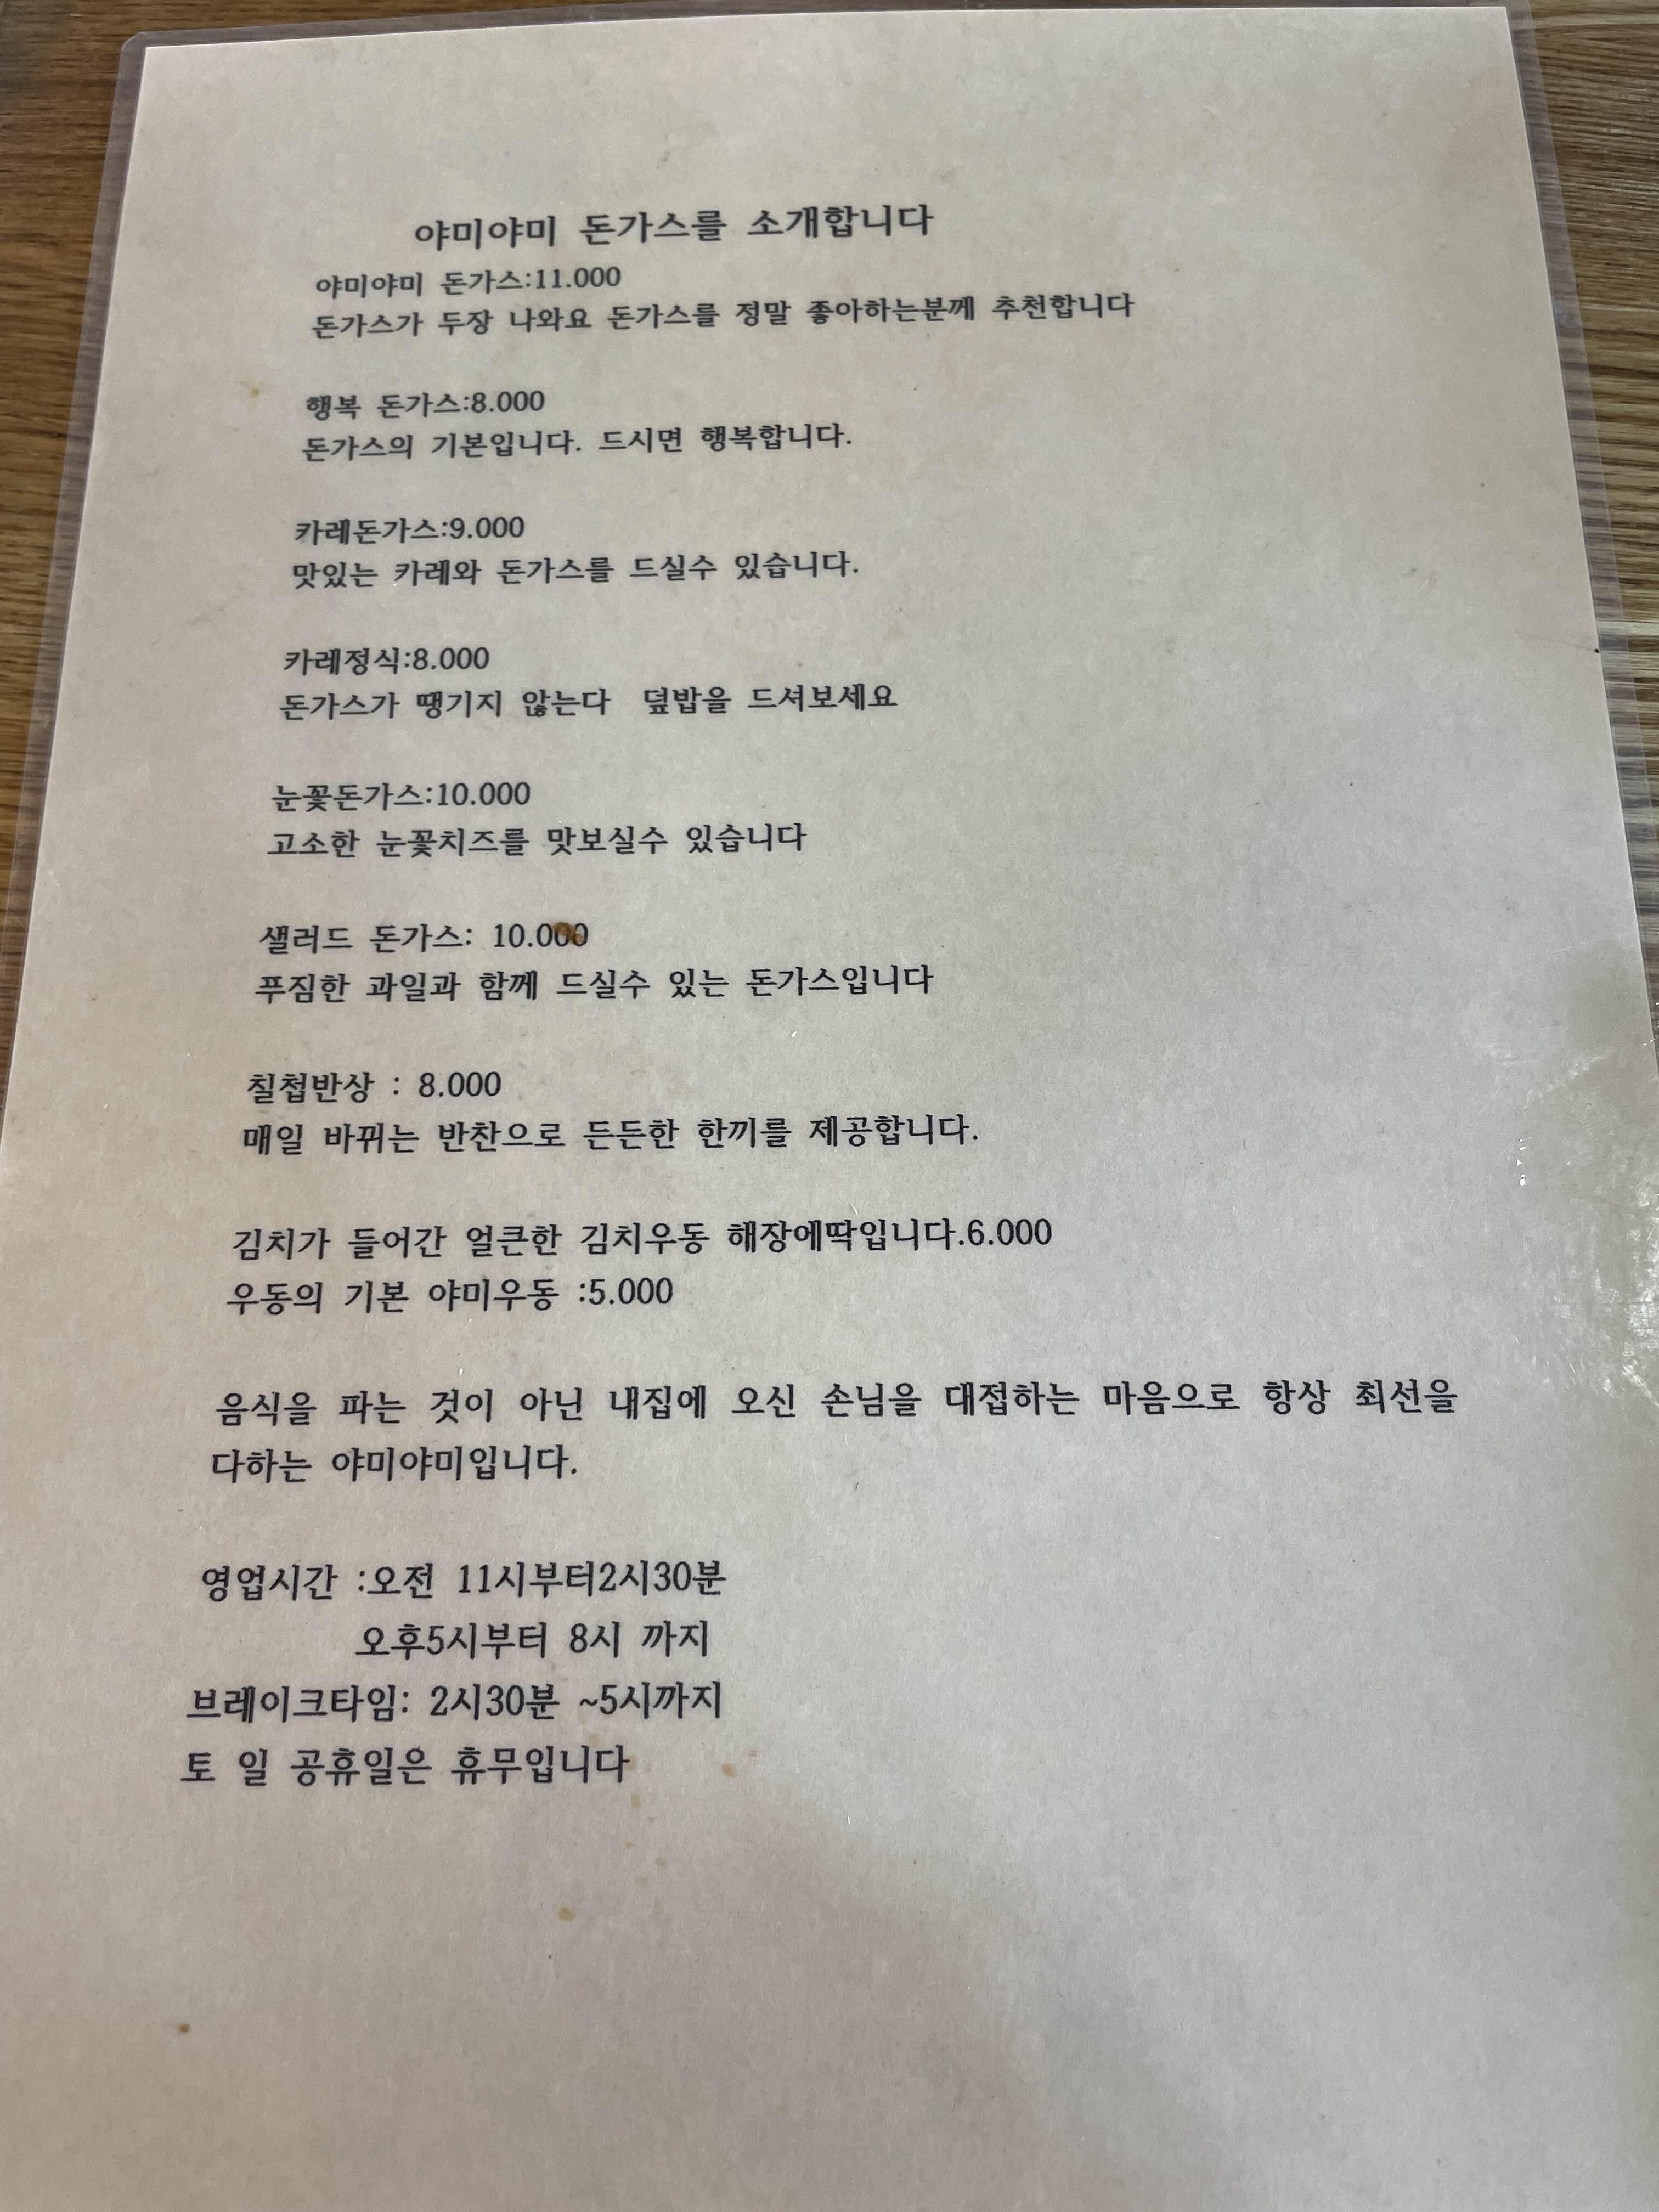 야미야미 돈가스를 소개합니다
야미야미 돈가스:11.000
돈가스가 두장 나와요 돈가스를 정말 좋아하는분께 추천합니다
행복 돈가스:8.000
돈가스의 기본입니다. 드시면 행복합니다.
카레돈가스:9.000
맛있는 카레와 돈가스를 드실수 있습니다.
카레정식:8.000
돈가스가 땡기지 않는다 덮밥을 드셔보세요
눈꽃돈가스:10.000
고소한 눈꽃치즈를 맛보실수 있습니다
샐러드 돈가스: 10.000
푸짐한 과일과 함께 드실수 있는 돈가스입니다
칠첩반상 : 8.000
매일 바뀌는 반찬으로 든든한 한끼를 제공합니다.
김치가 들어간 얼큰한 김치우동 해장에딱입니다.6.000
우동의 기본 야미우동 :5.000
음식을 파는 것이 아닌 내집에 오신 손님을 대접하는 마음으로 항상 최선을
다하는 야미야미입니다.
영업시간 :오전 11시부터2시30분
오후5시부터 8시 까지
브레이크타임: 2시30분 ~5시까지
토 일 공휴일은 휴무입니다